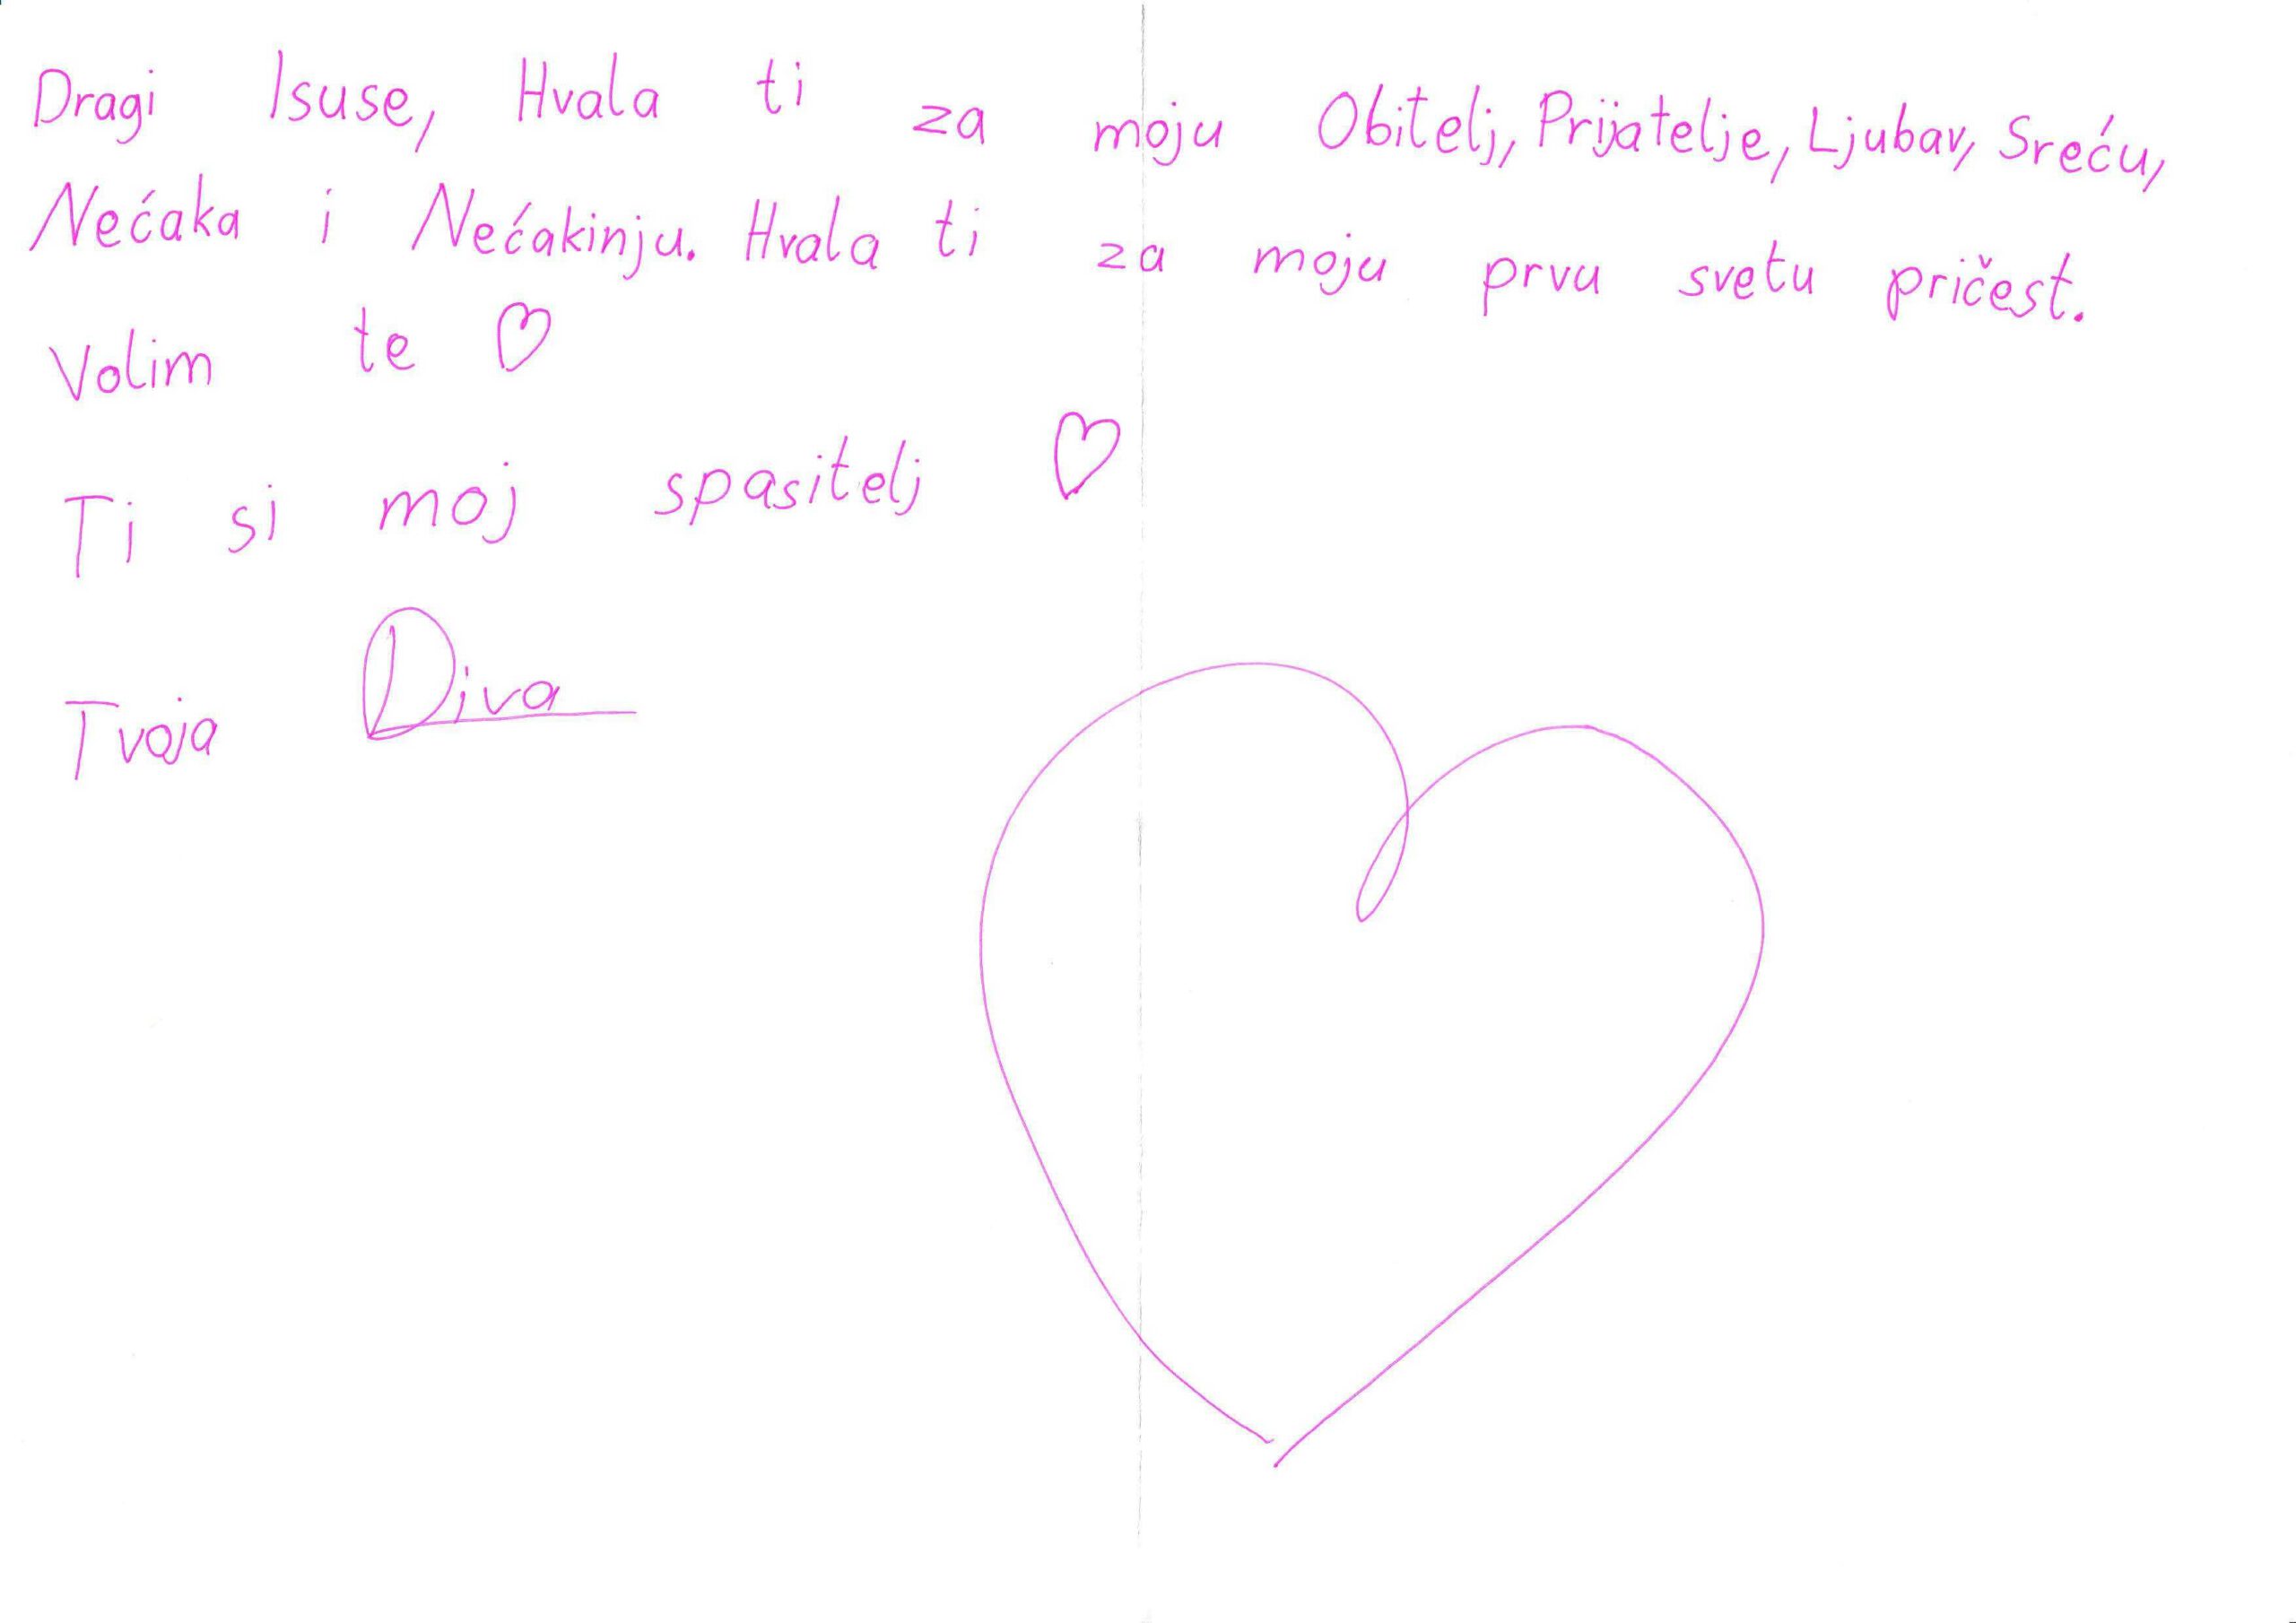 Dragi Isuse, Hvala ti za moju Obitelj, Prijatelje, Ljubav, Sreću,
Nećaka i Nećakinju. Hvala ti za moju prvu svetu pričest.
Volim te ♡
Ti si moj spasitelj ♡
Tvoja Diva